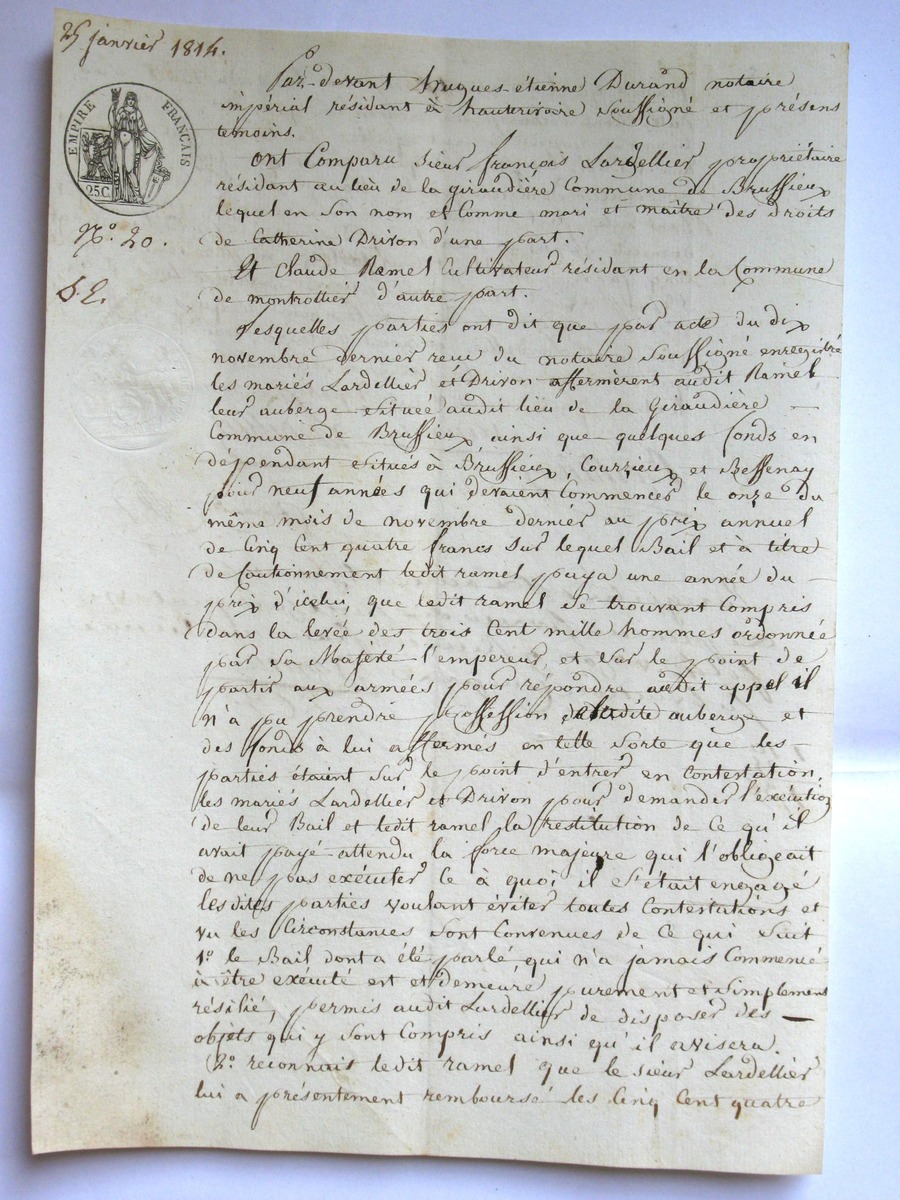 25 janvier 1814.
EMPIRE FRANÇAIS
25 C.
N.º 20.
Par-devant hugues-étienne Durand notaire
impérial résidant à hauterivoire soussigné et présens
témoins.
ont Comparu sieur françois Lardellier propriétaire
résidant au lieu de la giraudière Commune de Brussieux
lequel en son nom et Comme mari et maître des droits
de Catherine Drivon d'une part.
Et Claude Ramel Cultivateur résidant en la Commune
de montrottier d'autre part.
Lesquelles parties ont dit que par acte du dix
novembre dernier reçu du notaire soussigné enregistré
les mariés Lardellier et Drivon affermèrent audit Ramel
leur auberge située audit lieu de la Giraudière —
Commune de Brussieux ainsi que quelques fonds en
dépendant situés à Brussieux, Courzieux et Bessenay
pour neuf années qui devaient Commencer le onze du
même mois de novembre dernier au prix annuel
de Cinq Cent quatre francs sur lequel Bail et à titre
de Cautionnement ledit ramel paya une année du —
prix d'icelui, que ledit ramel se trouvant Compris
dans la levée des trois Cent mille hommes ordonnée
par sa Majésté l'empereur, et sur le point de
partir aux armées pour répondre audit appel il
n'a pu prendre possession de ladite auberge et
des fonds à lui affermés en telle sorte que les
parties étaient sur le point d'entrer en Contestation,
les mariés Lardellier et Drivon pour demander l'exécution
de leur Bail et ledit ramel la restitution de Ce qu'il
avait payé attendu la force majeure qui l'obligeait
de ne pas exécuter Ce à quoi il s'était engagé
lesdites parties voulant éviter toutes Contestations et
vu les Circonstances sont Convenues de Ce qui suit
1.º le Bail dont a été parlé qui n'a jamais Commencé
à être exécuté est et demeure purement et simplement
résilié, permis audit Lardellier de disposer des —
objets qui y sont Compris ainsi qu'il avisera.
2.º reconnais ledit ramel que le sieur Lardellier
lui a présentement remboursé les Cinq Cent quatre